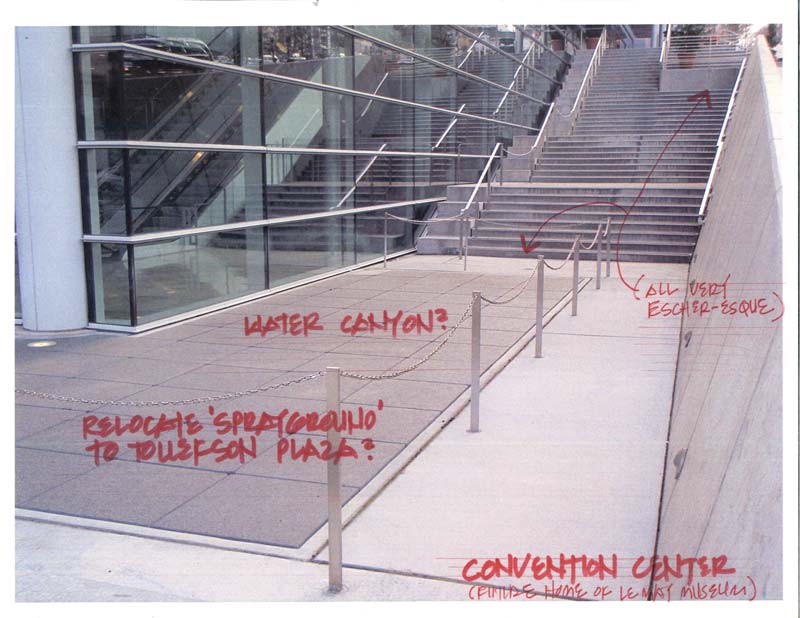 (ALL VERY
ESCHER-ESQUE)
WATER CANYON?
RELOCATE 'SPRAYGROUND'
TO TOLLEFSON PLAZA?
CONVENTION CENTER
(FUTURE HOME OF LEMAY MUSEUM)